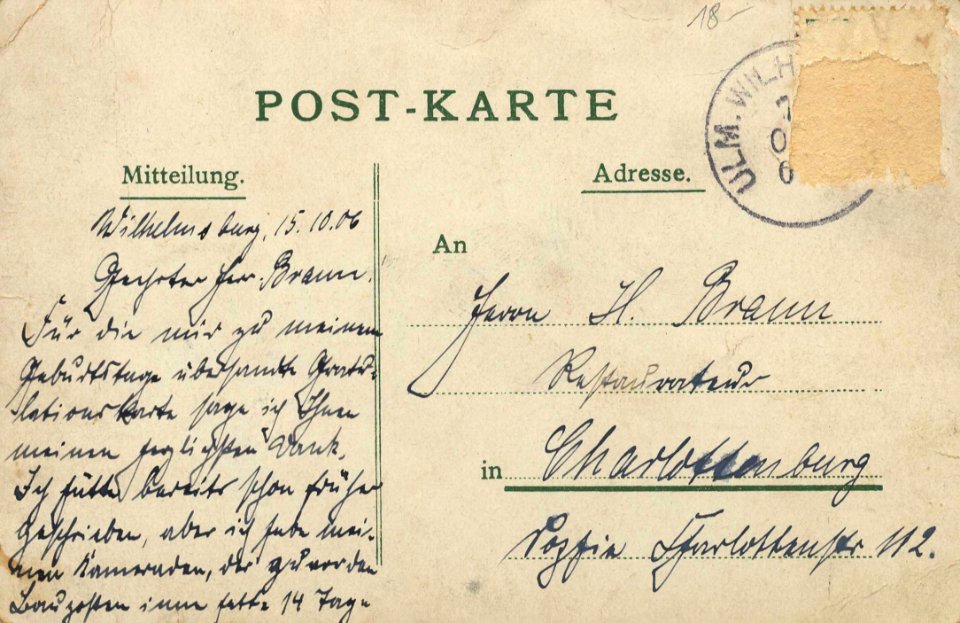 18-
POST-KARTE
ULM. WILH
Mitteilung.
Wilhelmsburg, 15.10.06
Geehrter Herr Braun.
Für die mir zu meinem
Geburtstage übersandte Gratu-
lationskarte sage ich Ihnen
meinen herzlichsten Dank.
Ich hätte bereits schon früher
geschrieben, aber ich habe mei-
nen Kameraden, der zuvor den
posten inne hatte 14 Tage
Adresse.
An
Herrn H. Braun
Restaurateur
in Charlottenburg
Sophie Charlottenstr 112.